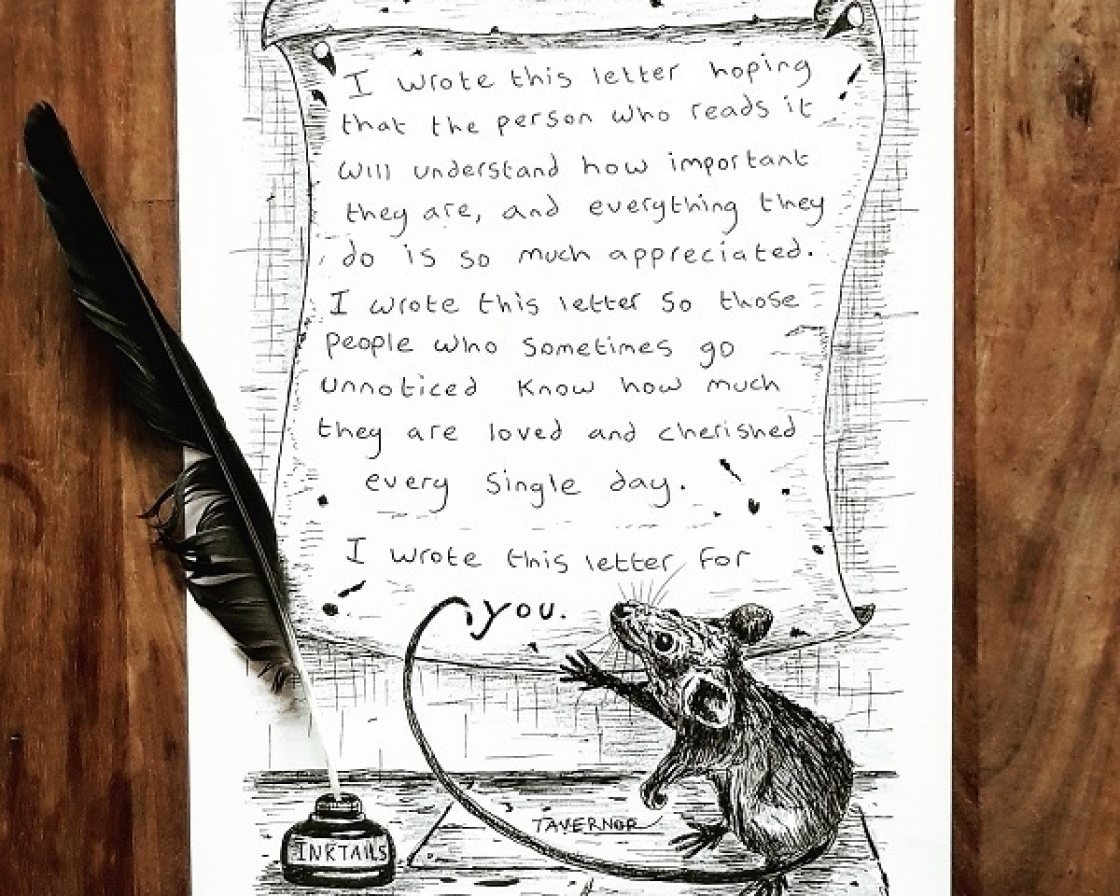 I wrote this letter hoping
that the person who reads it
will understand how important
they are, and everything they
do is so much appreciated.
I wrote this letter so those
people who sometimes go
unnoticed know how much
they are loved and cherished
every single day.
I wrote this letter for
you.
TAVERNOR
INKTAILS